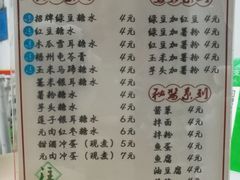 招牌绿豆糖水 4元
红豆糖水 4元
木瓜雪耳糖水 4元
梧州龟苓膏 4元
玉米马蹄糖水 4元
薏米银耳糖水 4元
芋头糖水 4元
莲子银耳糖水 6元
元肉红枣糖水 6元
甜酒冲蛋(现煮) 7元
元肉冲蛋(现煮) 7元
绿豆加红豆 4元
绿豆加薯粉 4元
红豆加薯粉 4元
玉米加薯粉 4元
芋头加薯粉 4元
秘制系列
酱菜 4元
拌面 4元
拌粉 4元
鱼蛋 4元
鱼腐 4元
油豆腐 4元